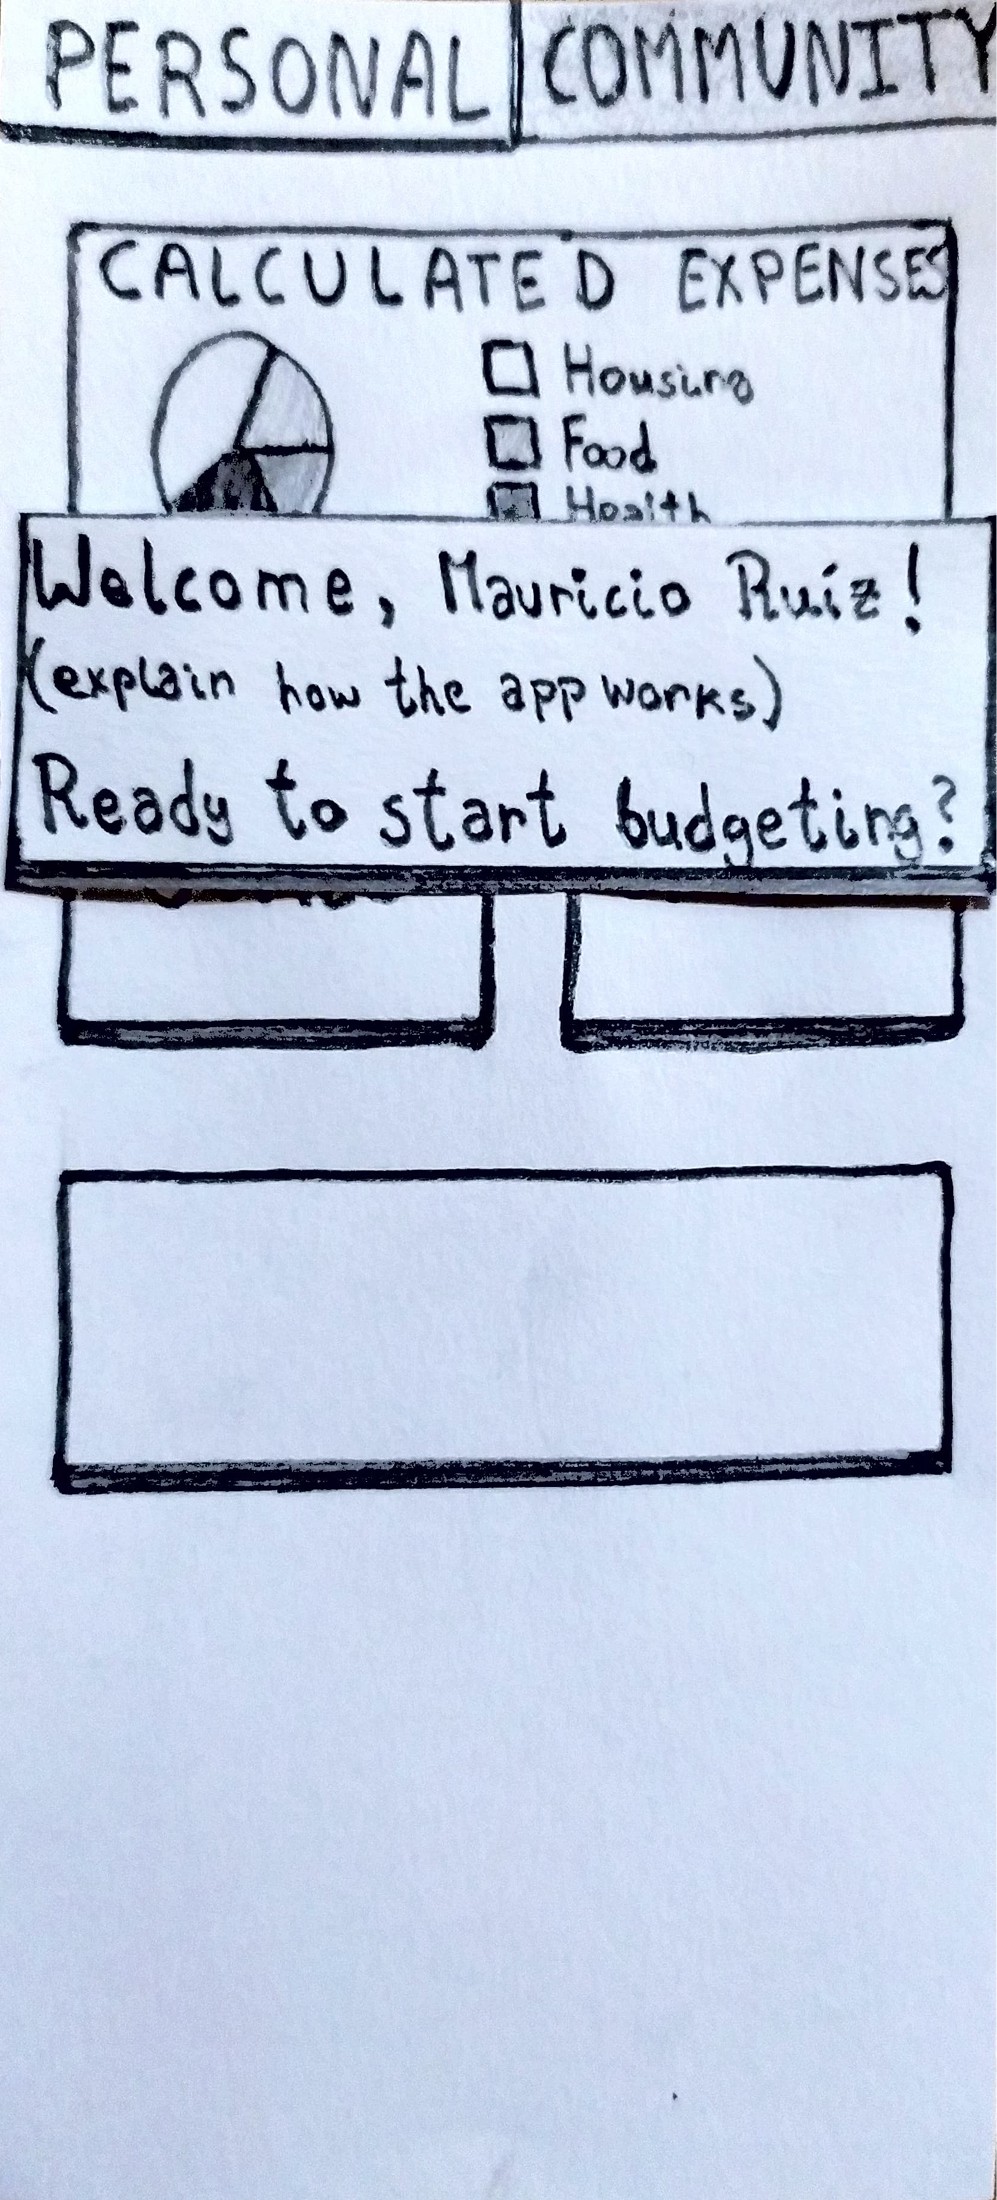 PERSONAL COMMUNITY
CALCULATED EXPENSES
Housing
Food
Health
Welcome, Mauricio Ruíz!
(explain how the app works)
Ready to start budgeting?